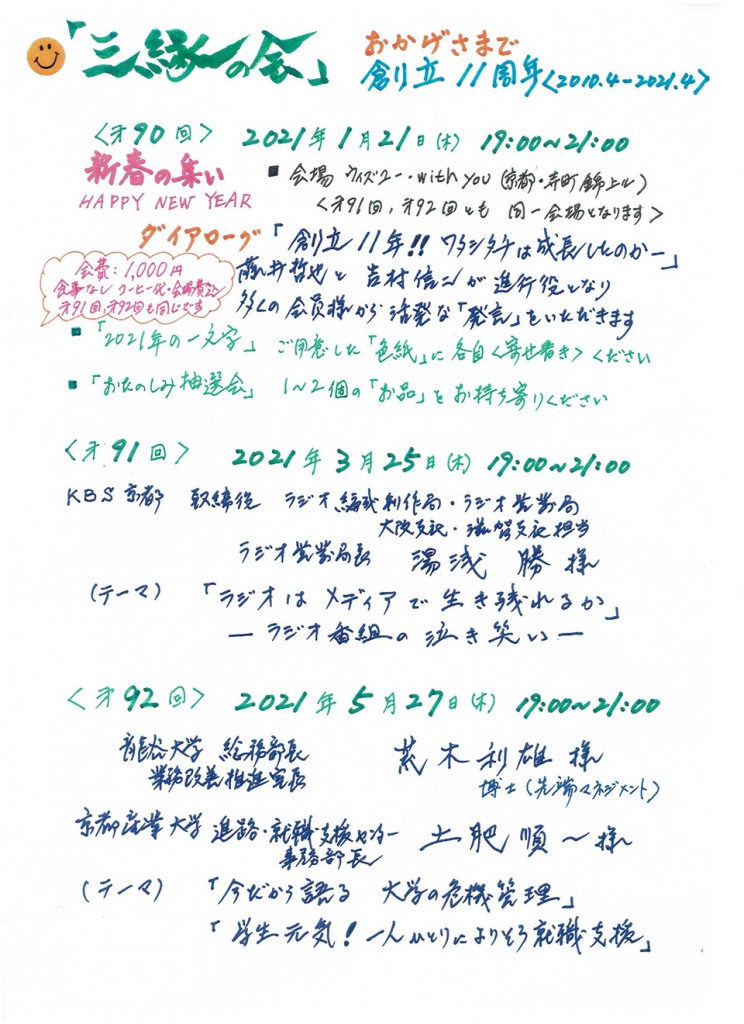 「三縁の会」
おかげさまで
創立11周年<2010.4-2021.4>
<才90回> 2021年1月21日(木) 19:00~21:00
新春の集い
HAPPY NEW YEAR
■ 会場 ウィズユー・with you (京都・寺町錦上ル)
<才91回,才92回とも 同一会場となります>
ダイアローグ「創立11年!! ワタシタチは成長したのかー」
藤井哲也と吉村信二が進行役となり
多くの会員様から活発な「発言」をいただきます
会費:1,000円
食事なし コーヒー代・会場費込
才91回,才92回も同じです
■ 「2021年の一文字」 ご用意した「色紙」に各自<寄せ書き>ください
■ 「おたのしみ抽選会」 1~2個の「お品」をお持ち寄りください
<才91回> 2021年3月25日(木) 19:00~21:00
KBS京都 取締役 ラジオ編成制作局・ラジオ営業局
大阪支社・滋賀支社担当
ラジオ営業局長 湯浅 勝 様
(テーマ) 「ラジオはメディアで生き残れるか」
ーラジオ番組の泣き笑いー
<才92回> 2021年5月27日(木) 19:00~21:00
龍谷大学 総務部長 荒木利雄 様
業務改善推進室長 博士(先端マネジメント)
京都産業大学 進路・就職支援センター 土肥順一様
事務部長
(テーマ) 「今だから語る 大学の危機管理」
「学生元気! 一人ひとりによりそう就職支援」